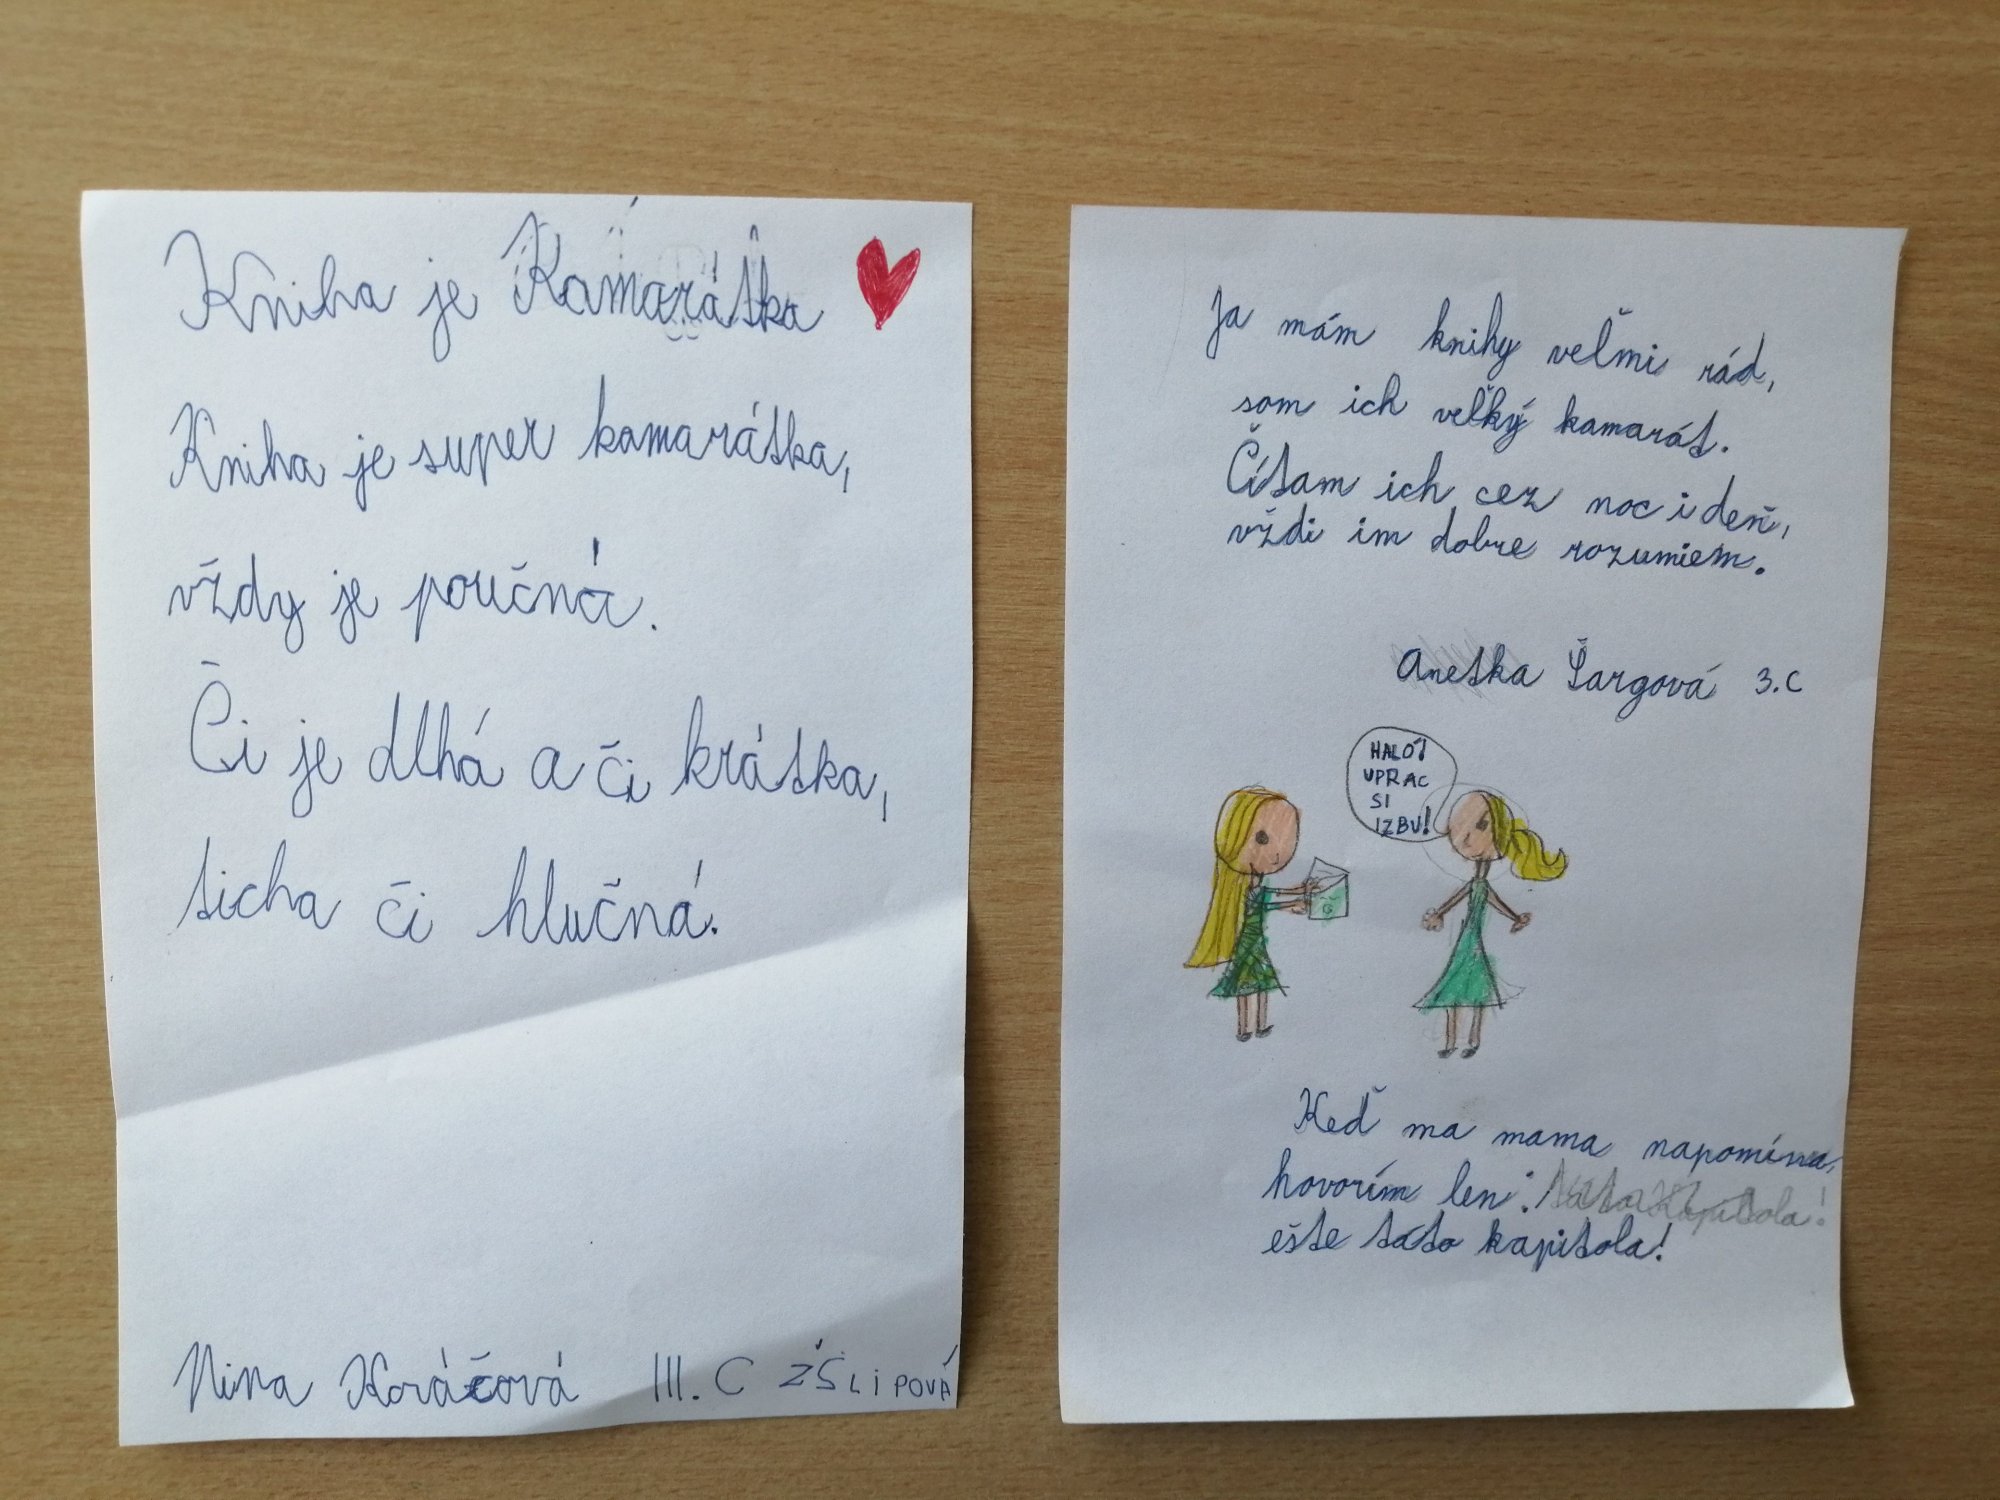 Kniha je Kamarátka
Kniha je super kamarátka,
vždy je poučná.
Či je dlhá a či krátka,
ticha či hlučná.
Nina Kováčová III. C ZŠ LiPOVÁ
Ja mám knihy veľmi rád,
som ich veľký kamarát.
Čítam ich cez noc i deň,
vždi im dobre rozumiem.
Anetka Šargová 3.C
HALÓ!
UPRAC
SI
IZBU!
Keď ma mama napomína,
hovorím len: táto kapitola!
ešte táto kapitola!